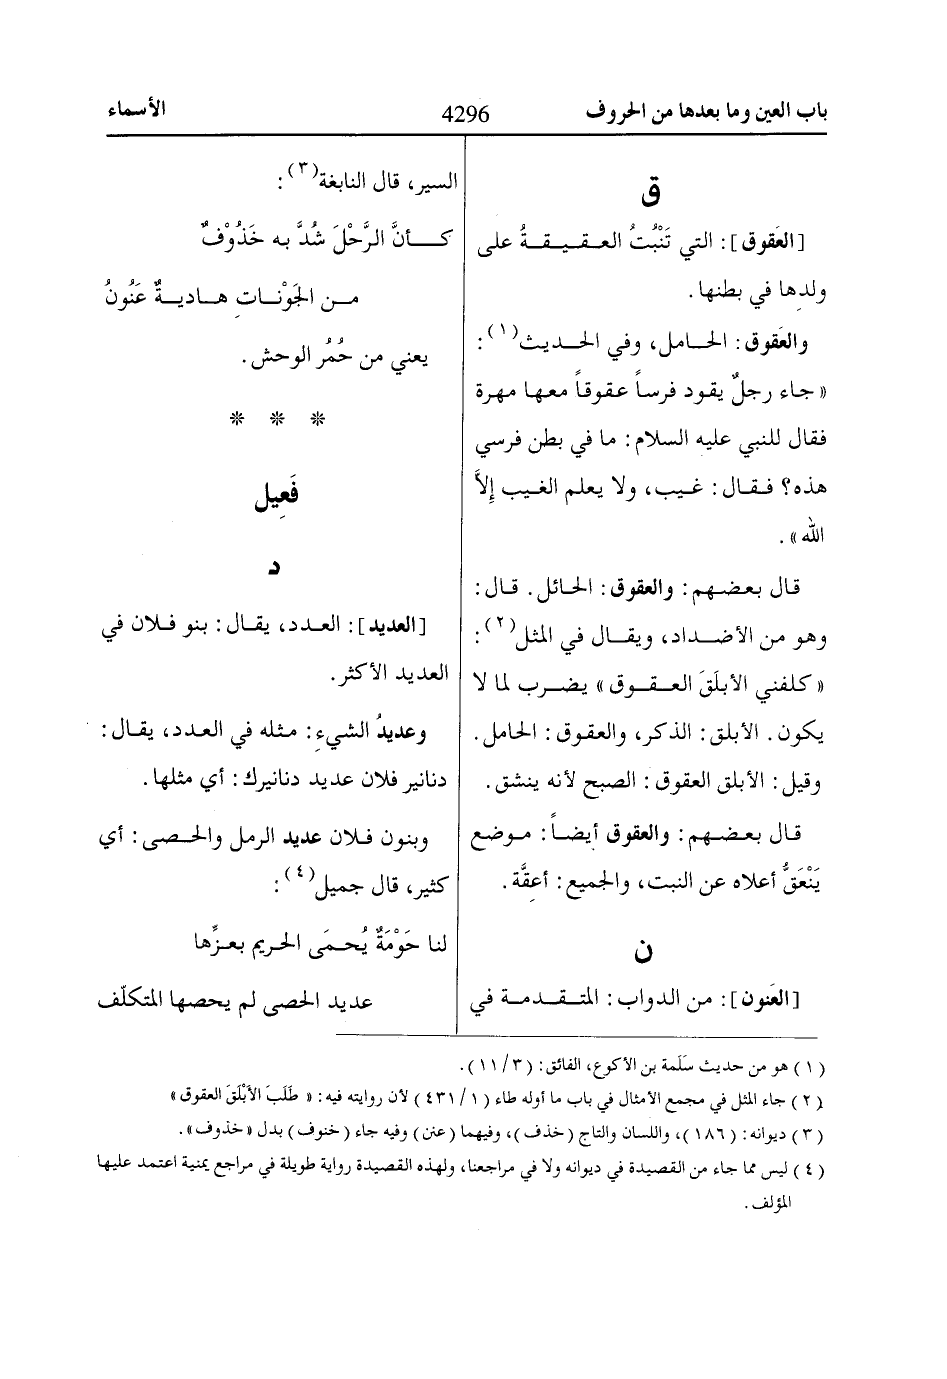 باب العين وما بعدها من الحروف
4296
الأسماء
ق
[العَقوق]: التي تَنْبُتُ العقيقةُ على
ولدها في بطنها.
والعَقوق: الحامل، وفي الحديث(١):
«جاء رجلٌ يقود فرساً عقوقاً معها مهرة
فقال للنبي عليه السلام: ما في بطن فرسي
هذه؟ فقال: غيب، ولا يعلم الغيب إِلاَّ
الله».
قال بعضهم: والعقوق: الحائل. قال:
وهو من الأضداد، ويقال في المثل(٢):
«كلفني الأبلَقَ العقوق» يضرب لما لا
يكون. الأبلق: الذكر، والعقوق: الحامل.
وقيل: الأبلق العقوق: الصبح لأنه ينشق.
قال بعضهم: والعقوق أيضاً: موضع
يَنْعَقُّ أعلاه عن النبت، والجميع: أعقَّة.
ن
[العَنون]: من الدواب: المتقدمة في
السير، قال النابغة(٣):
كأنَّ الرَّحْلَ شُدَّ به خَذُوْفٌ
من الجَوْنات هاديةٌ عَنُونُ
يعني من حُمُر الوحش.
* * *
فَعِيل
د
[العديد]: العدد، يقال: بنو فلان في
العديد الأكثر.
وعديدُ الشيءِ: مثله في العدد، يقال:
دنانير فلان عديد دنانيرك: أي مثلها.
وبنون فلان عديد الرمل والحصى: أي
كثير، قال جميل(٤):
لنا حَوْمَةٌ يُحمَى الحريم بعزِّها
عديد الحصى لم يحصها المتكلّف
(١) هو من حديث سَلَمة بن الأكوع، الفائق: (٣/ ١١).
(٢) جاء المثل في مجمع الأمثال في باب ما أوله طاء (١/ ٤٣١) لأن روايته فيه: «طَلَبَ الأَبْلَقَ العقوق»
(٣) ديوانه: (١٨٦)، واللسان والتاج (خذف)، وفيهما (عنن) وفيه جاء (خنوف) بدل «خذوف».
(٤) ليس مما جاء من القصيدة في ديوانه ولا في مراجعنا، ولهذه القصيدة رواية طويلة في مراجع يمنية اعتمد عليها
المؤلف.